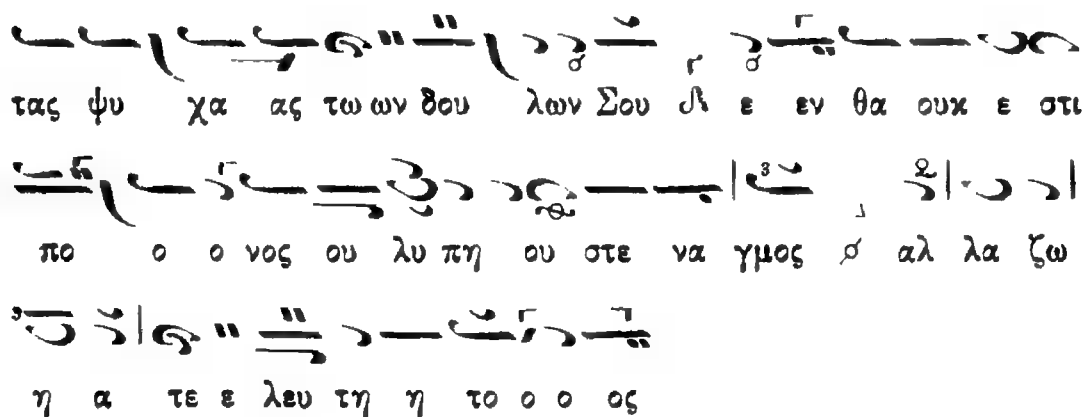 τας ψυ χα ας τω ων δου λων Σου ε εν θα ουκ ε στι
πο ο ο νος ου λυ πη ου στε να γμος αλ λα ζω
η α τε ε λευ τη η το ο ο ος